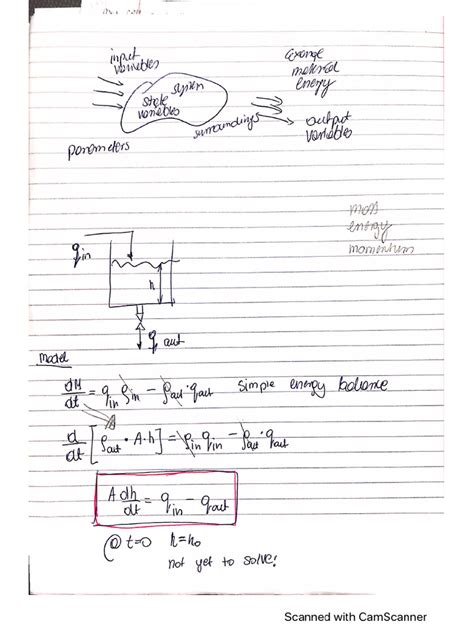 input
variables
system
state
variables
surroundings
parameters
material
energy
output
variables
mass
energy
momentum
q in
h
q out
Model
dM/dt = q_in ρ_in − ρ_out · q_out simple energy balance
d/dt [ρ_out · A · h] = ρ_in q_in − ρ_out · q_out
A dh/dt = q_in − q_out
@ t=0 h=h₀
not yet to solve!
Scanned with CamScanner